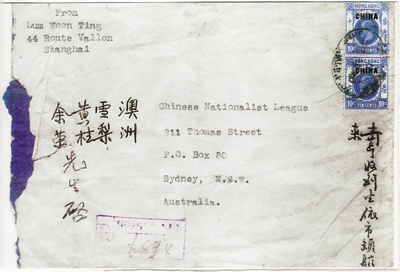 From
Lum Woon Ting
44 Route Vallon
Shanghai
HONG KONG
CHINA
10c TEN CENTS 10c
HONG KONG
CHINA
10c TEN CENTS 10c
Chinese Nationalist League
211 Thomas Street
P.O. Box 80
Sydney, N.S.W.
Australia.
澳洲
雪梨
黄桂
余荣
先生启